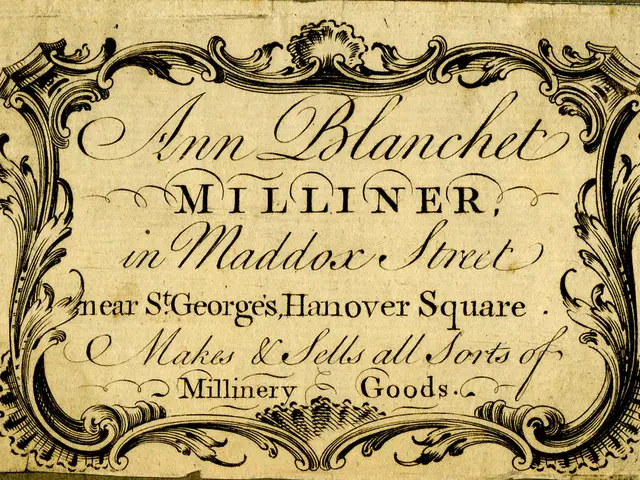 Ann Blanchet
MILLINER,
in Maddox Street
near St. George's, Hanover Square.
Makes & Sells all Sorts of
Millinery Goods.